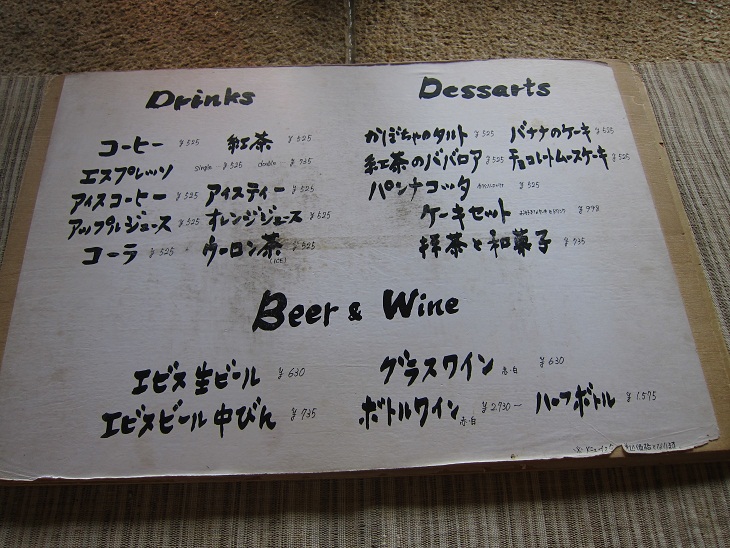 Drinks
コーヒー ¥525 紅茶 ¥525
エスプレッソ single ¥525 double ¥735
アイスコーヒー ¥525 アイスティー ¥525
アップルジュース ¥525 オレンジジュース ¥525
コーラ ¥525 ウーロン茶 (ICE) ¥525
Dessarts
かぼちゃのタルト ¥525 バナナのケーキ ¥525
紅茶のババロア ¥525 チョコレートムースケーキ ¥525
パンナコッタ ¥525
ケーキセット ¥998
抹茶と和菓子 ¥735
Beer & Wine
エビス生ビール ¥630
エビスビール中びん ¥735
グラスワイン 赤・白 ¥630
ボトルワイン 赤・白 ¥2,730〜 ハーフボトル ¥1,575